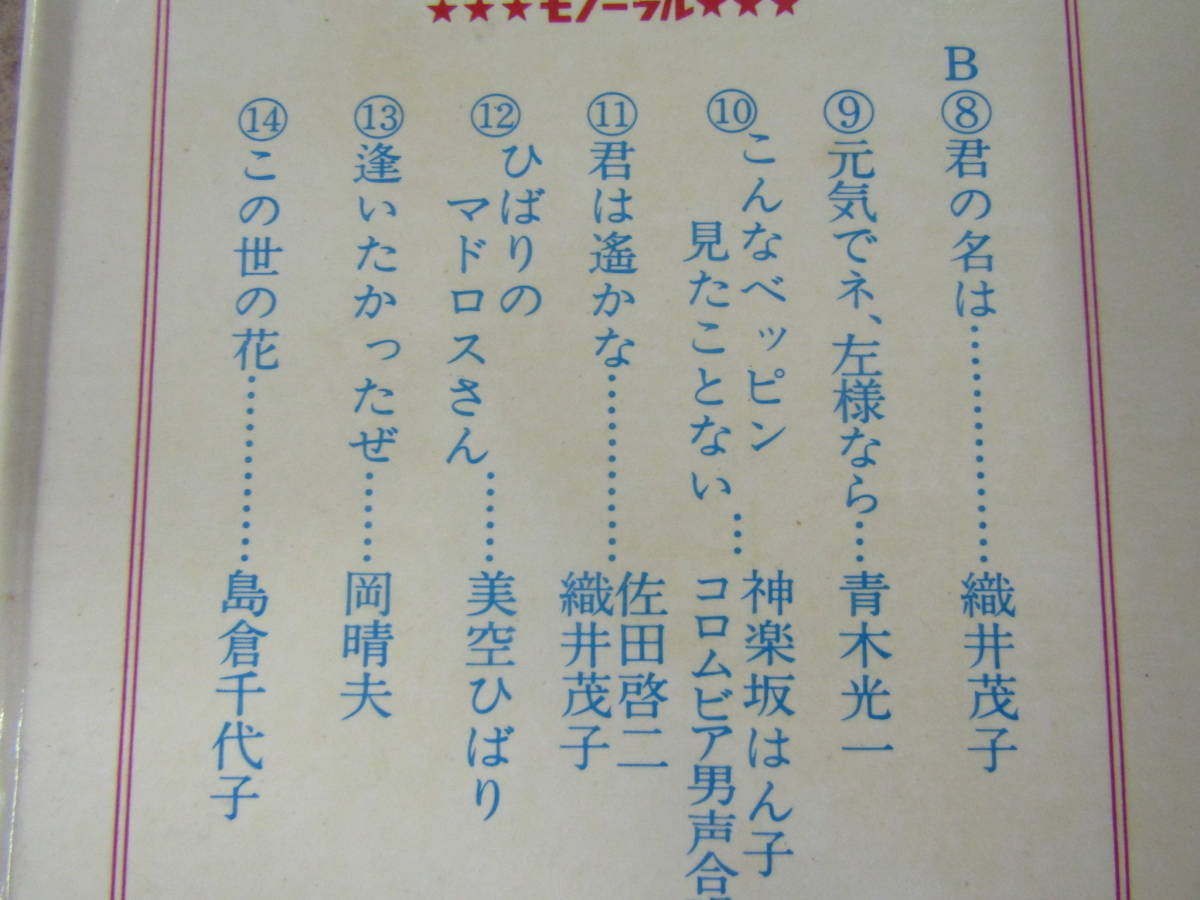 ★★★モノーラル★★★
B
⑧君の名は……………織井茂子
⑨元気でネ、左様なら…青木光一
⑩こんなベッピン
見たことない…神楽坂はん子
コロムビア男声合
⑪君は遙かな…………佐田啓二
織井茂子
⑫ひばりの
マドロスさん……美空ひばり
⑬逢いたかったぜ……岡晴夫
⑭この世の花…………島倉千代子